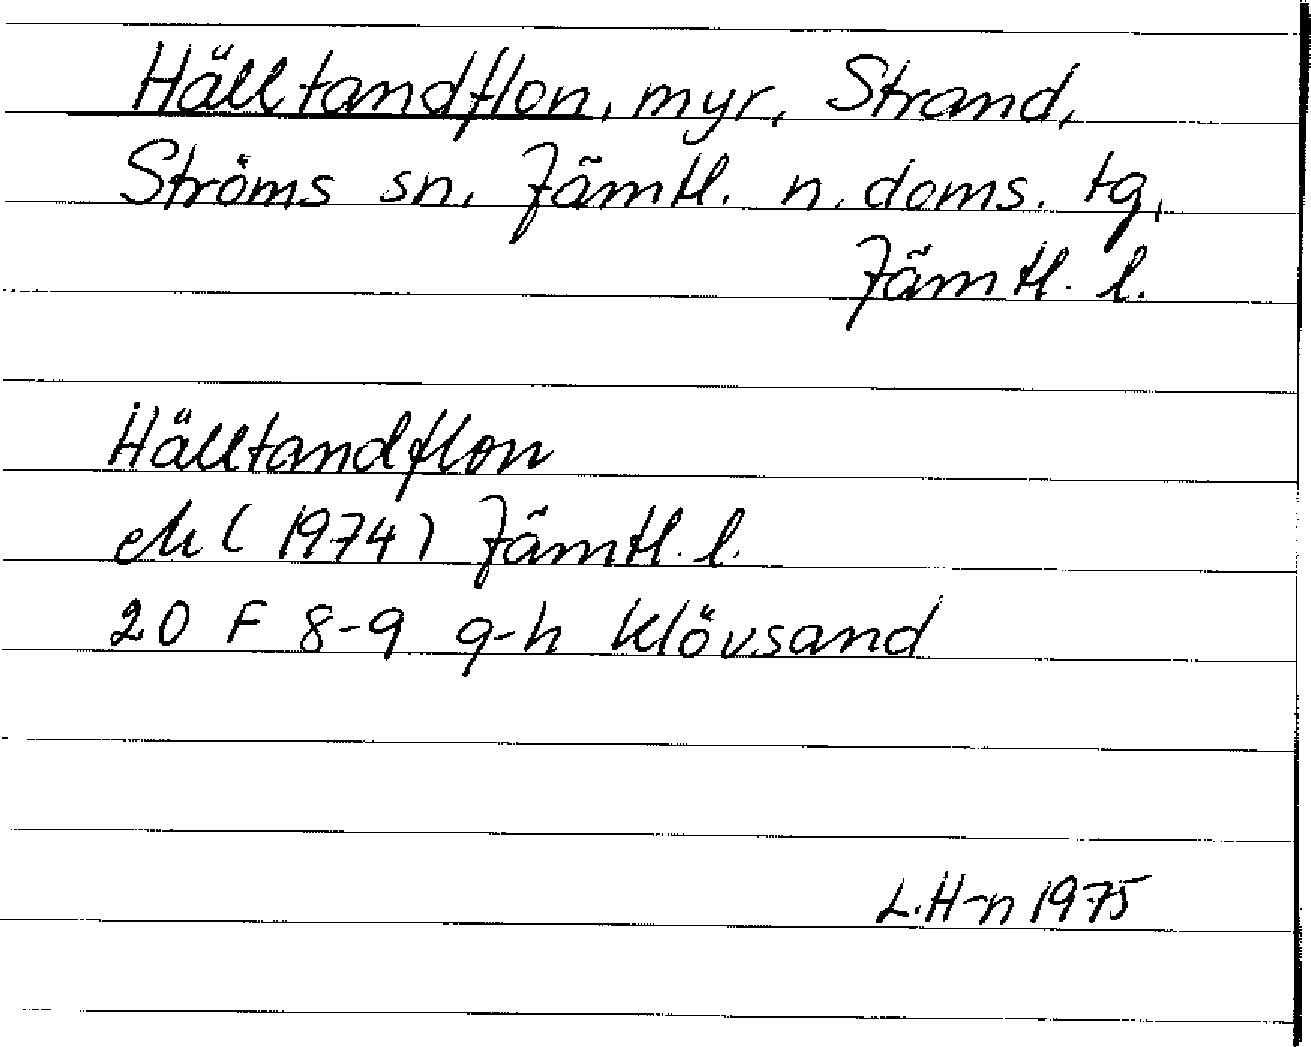 Hälltandflon, myr, Strand,
Ströms sn, Jämtl. n. doms. tg,
Jämtl. l.
Hälltandflon
ek (1974) Jämtl. l.
20 F 8-9 g-h Klövsand
L.H-n 1975